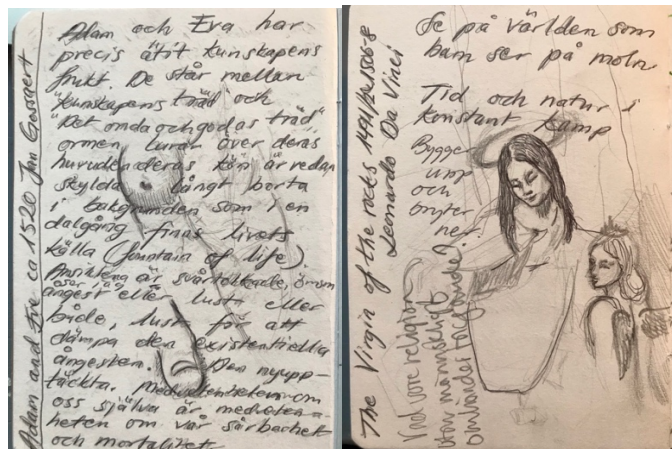 Adam and Eve ca 1520 Jan Gossaert
Adam och Eva har
precis ätit kunskapens
frukt. De står mellan
"kunskapens träd" och
"Det onda och godas träd"
ormen lurar över deras
huvuden deras kön är redan
skylda långt borta
i bakgrunden som i en
dalgång finns livets
källa (fountain of life)
Ansiktena är svårtolkade,
ångest eller lust eller
både, lust för att
dämpa den existentiella
ångesten. Den nyupp-
täckta. medvetenheten om
oss själva är medveten-
heten om vår sårbarhet
och mortalitet
The Virgin of the rocks
Leonardo Da Vinci
Se på världen som
barn ser på moln
Tid och natur i
konstant kamp
Bygger
upp
och
bryter
ner.
Vad vore religion
utan mänskligt